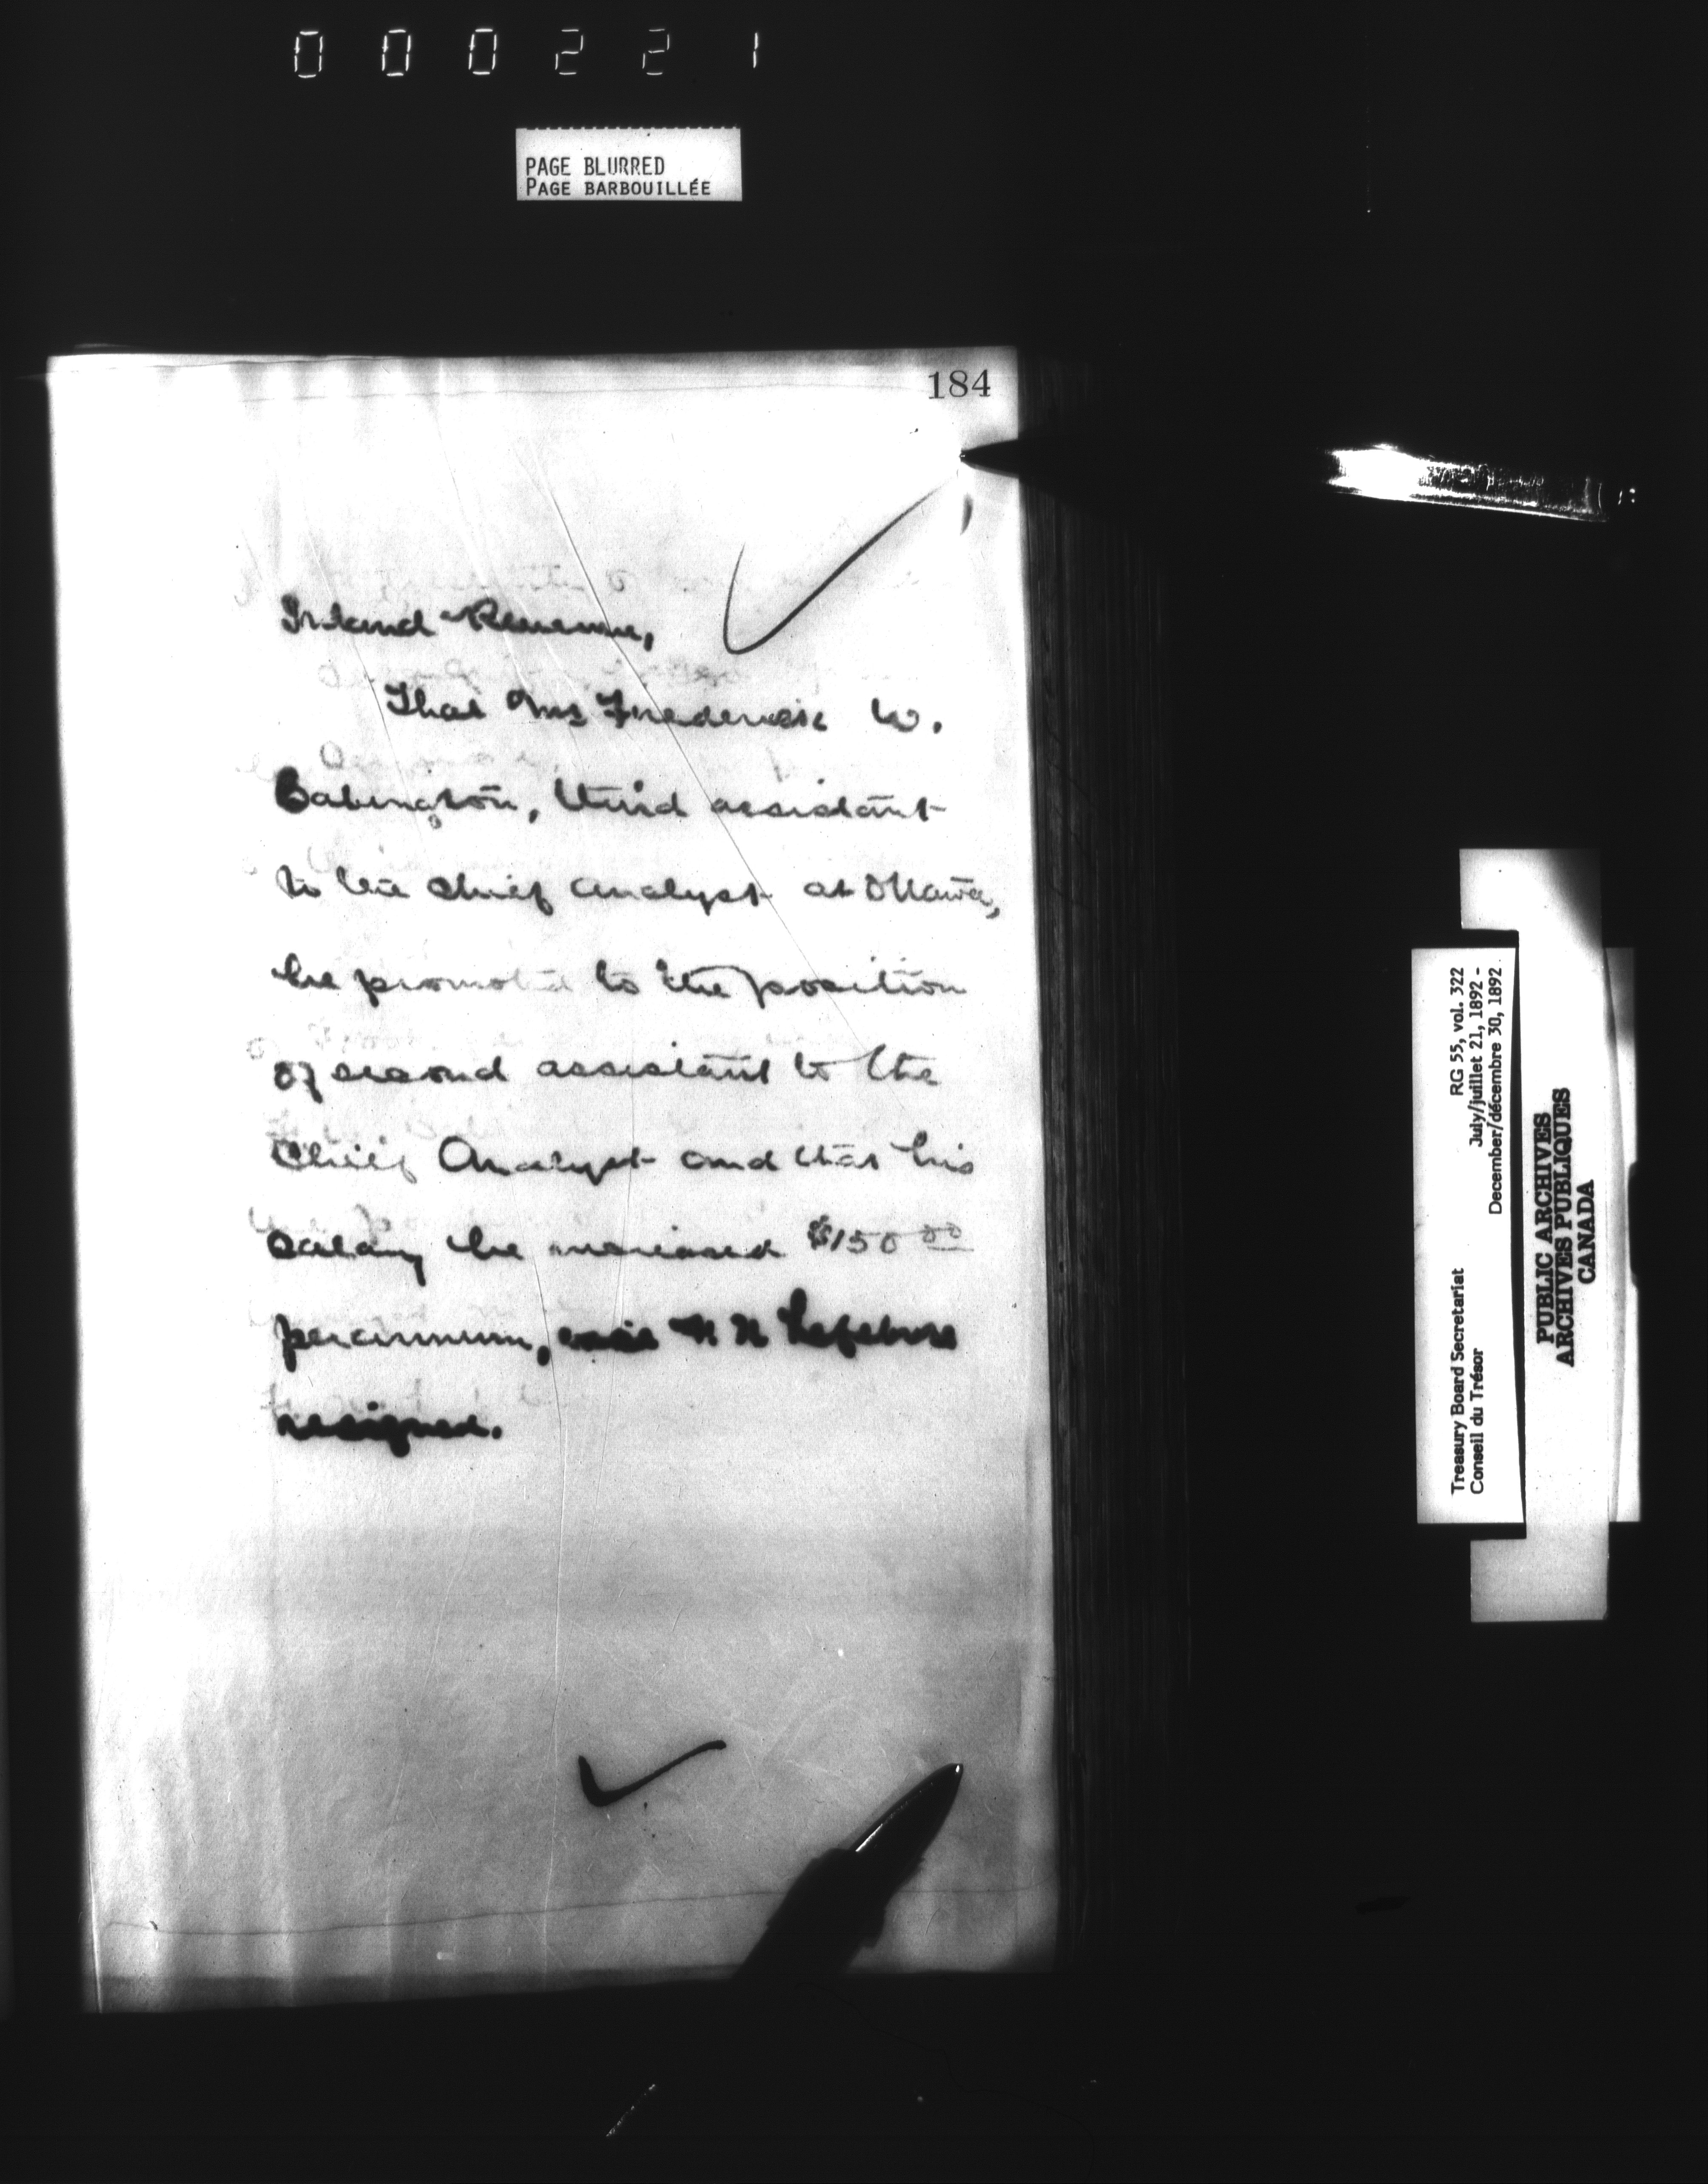 000221
PAGE BLURRED
PAGE BARBOUILLÉE
184
Inland Revenue,
That Mr Frederick W.
Babington, third assistant
to the chief Analyst at Ottawa,
be promoted to the position
of second assistant to the
Chief Analyst and that his
salary be increased $150 00
per annum, vice Lefebvre
resigned.
Treasury Board Secretariat RG 55, vol. 322
Conseil du Trésor July/juillet 21, 1892 -
December/décembre 30, 1892
PUBLIC ARCHIVES
ARCHIVES PUBLIQUES
CANADA